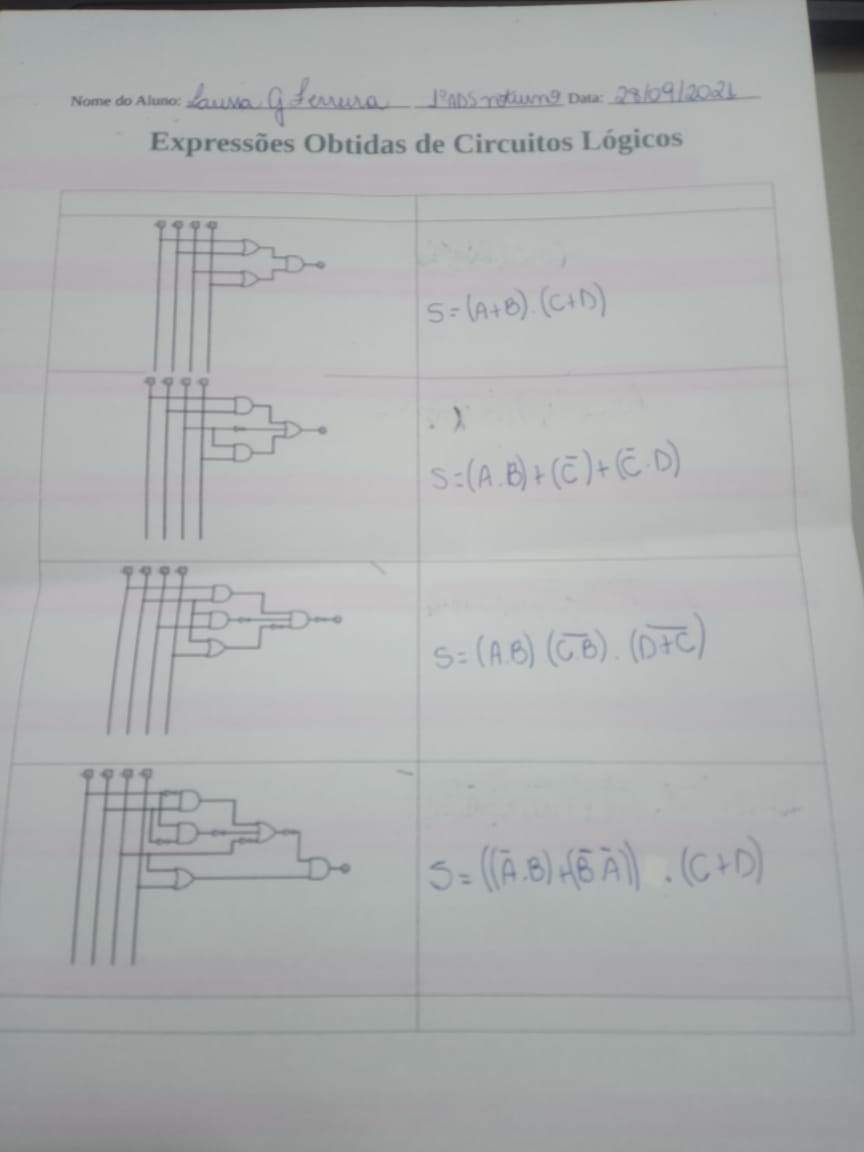 Nome do Aluno: Laura G Ferreira 1º ADS noturno Data: 28/09/2021
Expressões Obtidas de Circuitos Lógicos
S=(A+B).(C+D)
S=(A.B)+(C̅)+(C̅.D)
S=(A.B) (C̅.̅B̅).(D̅+̅C̅)
S=((A̅.B)+(B̅ A̅)) .(C+D)